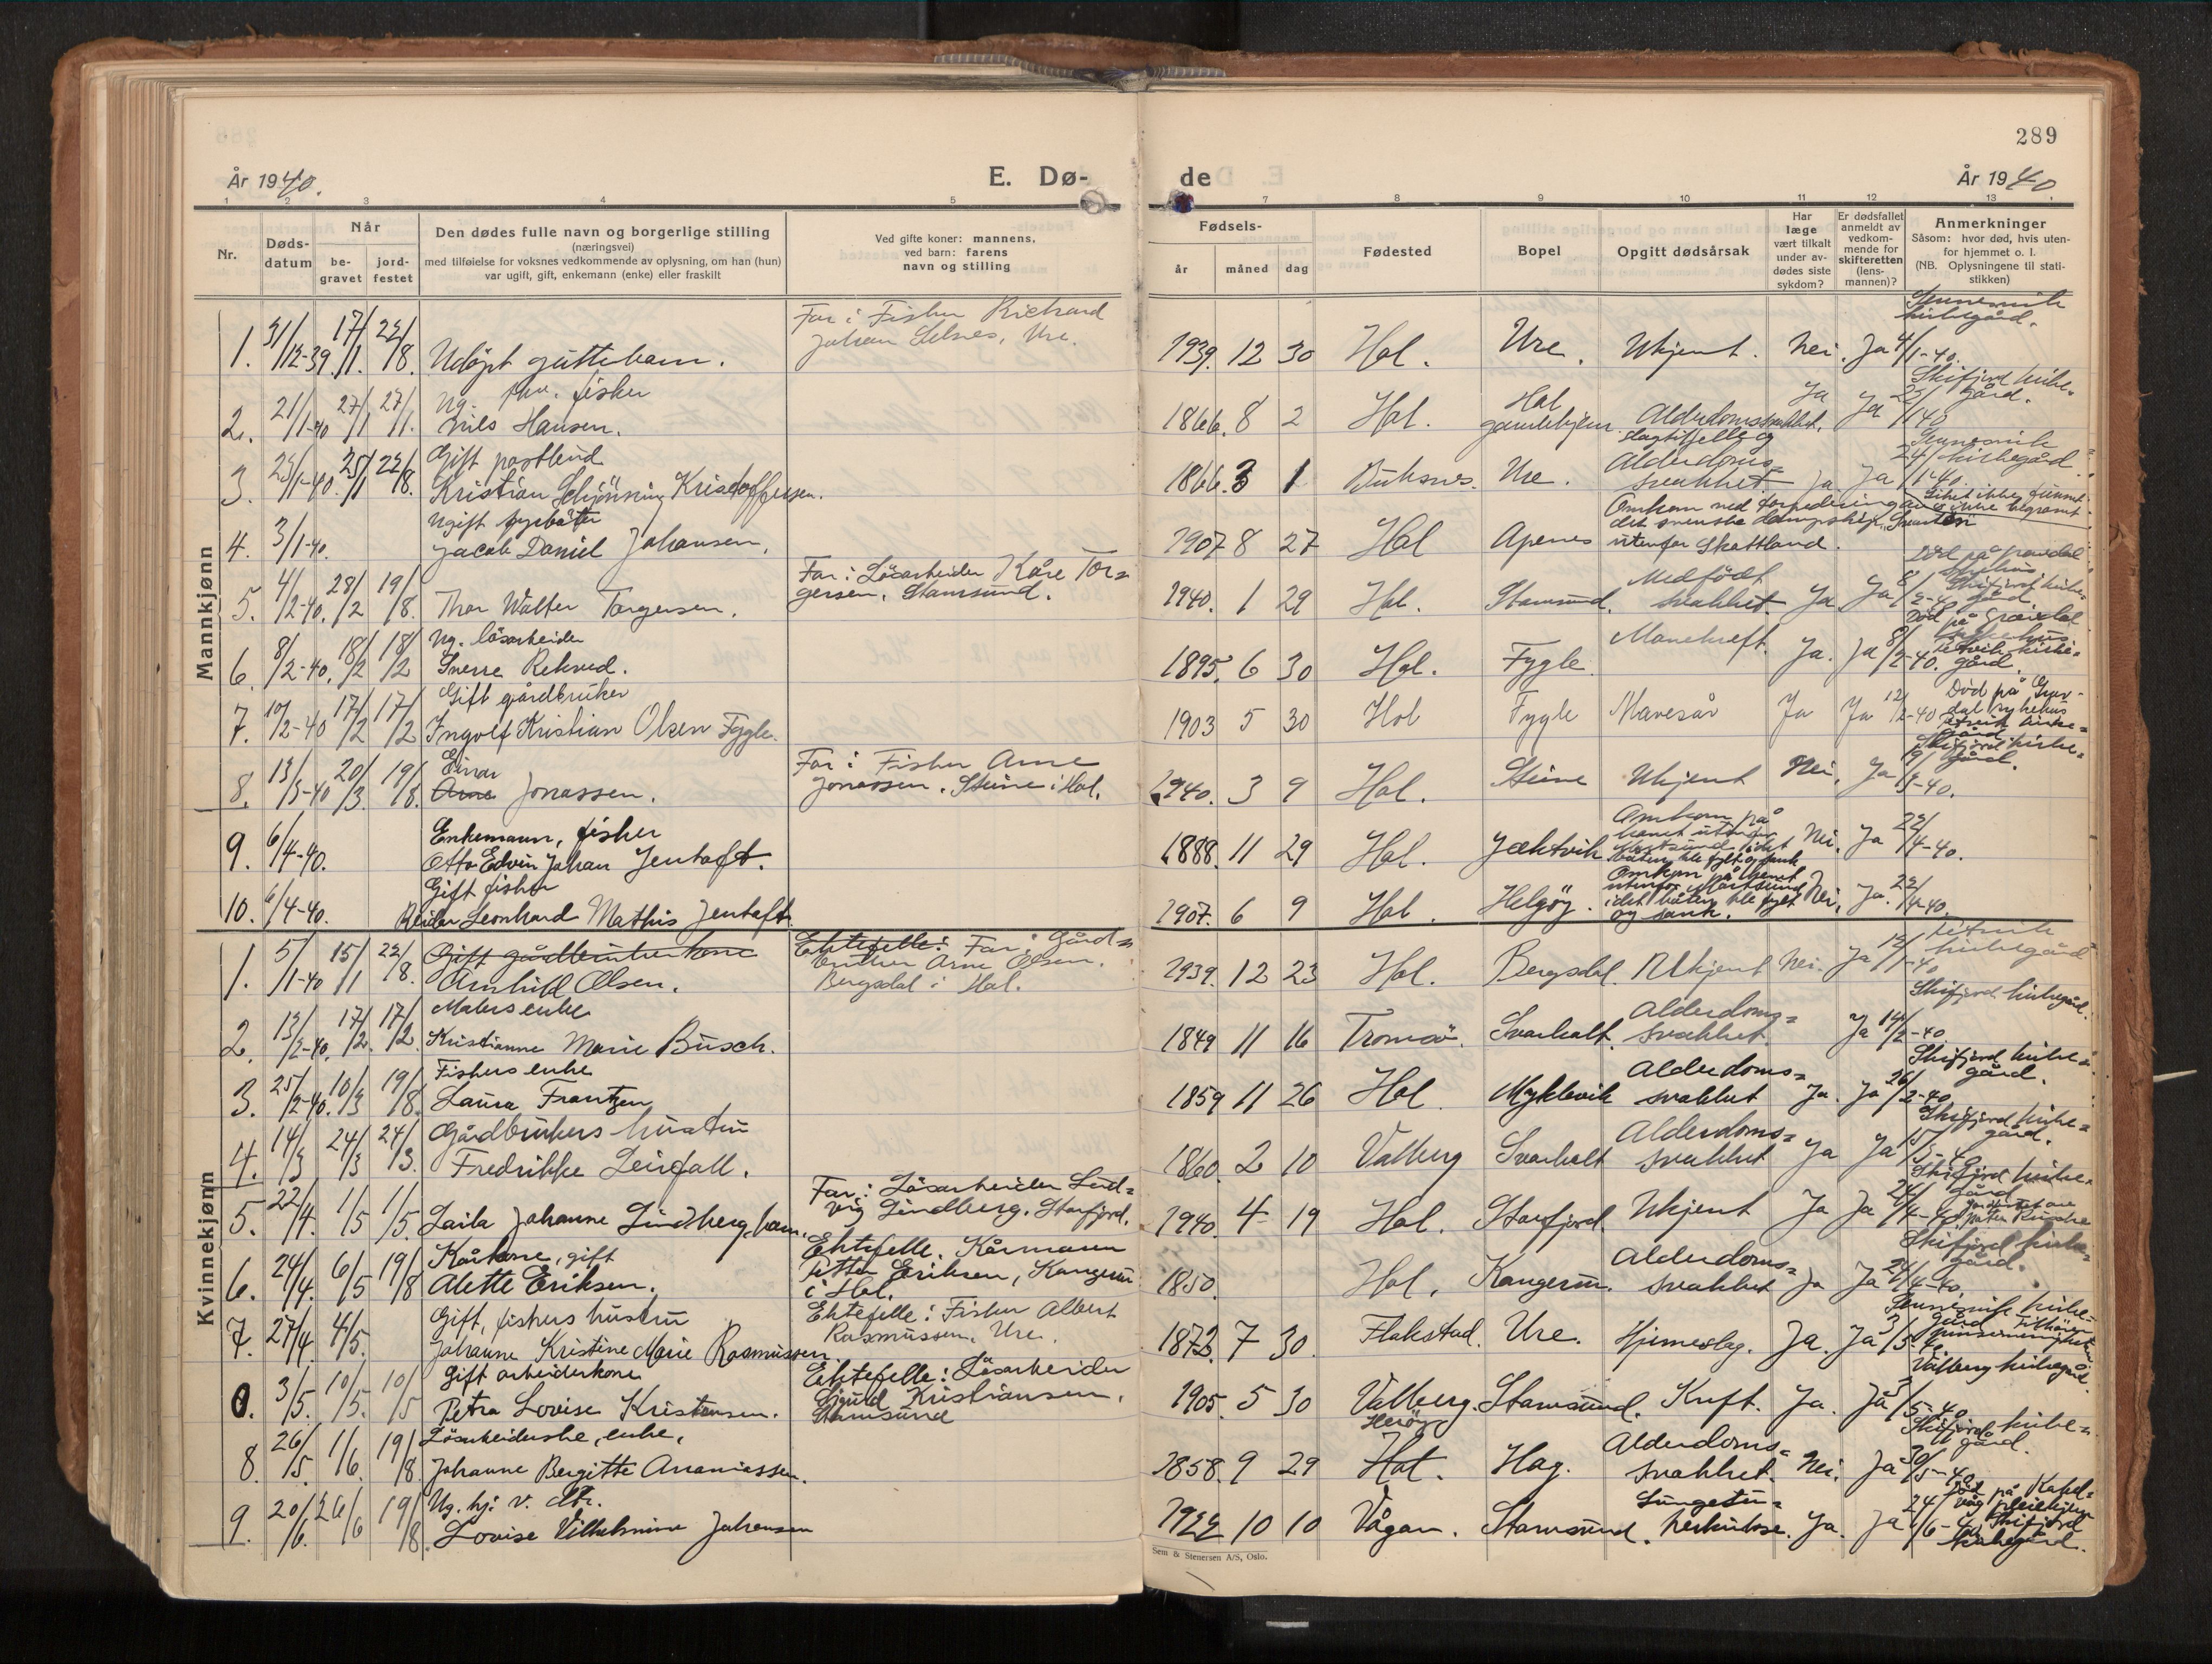 289
År 1940.
E. Dø-
de
År 1940
1 2 3 4 5
7 8 9 10 11 12 13
Nr.
Døds-
datum
Når
be-
gravet
jord-
festet
Den dødes fulle navn og borgerlige stilling
(næringsvei)
med tilføielse for voksnes vedkommende av oplysning, om han (hun)
var ugift, gift, enkemann (enke) eller fraskilt
Ved gifte koner: mannens,
ved barn: farens
navn og stilling
Fødsels-
år måned dag
Fødested
Bopel
Opgitt dødsårsak
Har
læge
vært tilkalt
under av-
dødes siste
sykdom?
Er dødsfallet
anmeldt av
vedkom-
mende for
skifteretten
(lens-
mannen)?
Anmerkninger
Såsom: hvor død, hvis uten-
for hjemmet o. l.
(NB. Oplysningene til stati-
stikken)
Mannkjønn
Far: Fisker Richard
Johan Selnes, Ure.
kirkegård.
1. 31/12-39. 17/1. 22/8. Udöpt guttebarn. 1939. 12 30 Hol. Ure. Ukjent. Nei. Ja 4/1-40.
Ug. fisker
Skifjord kirke-
gård.
2. 21/1-40 27/1 27/1. Nils Hansen. 1866. 8 2 Hol. Hol
gamlehjem. Alderdomssvakhet. Ja Ja
Gift postbud
slagtilfelle og
kirkegård
3. 23/1-40. 25/1 22/8. Kristian Schjönning Kristoffersen. 1866. 3 1 Buksnes. Ure. Alderdoms=
svakhet Ja Ja 24/1-40.
Ugift fyrböter
Omkom ved torpedering av
det svenske dampskip
utenfor Skottland.
Liket ikke funnet
4. 3/1-40. Jacob Daniel Johansen. 1907 8 27 Hol Apenes
Far: Lösarbeider Kåre Tor=
gersen, Stamsund.
5. 4/2-40. 28/2 19/8. Thor Walter Torgersen. 1940. 1 29 Hol. Stamsund. Medfödt
svakhet Ja Ja
Ug. lösarbeider
Död på Gravdal
6. 8/2-40. 18/2 18/2 Sverre Rekved. 1895. 6 30 Hol. Fygle. Mavekreft. Ja. Ja 8/2-40.
kirke=
gård.
Gift gårdbruker
Död på Grav-
dal sykehus
7. 10/2-40 17/2 17/2 Ingolf Kristian Olsen Fygle. 1903 5 30 Hol Fygle Mavesår Ja Ja 12/2-40
Far: Fisker Arne
Jonassen. Steine i Hol.
Skifjord kirke-
gård.
8. 13/3-40 20/3. 19/8. Einar
Arne Jonassen. 1940. 3 9 Hol. Steine Ukjent Nei. Ja
Enkemann, fisker
Omkom på
havet utenfor
idet
båten ble fylt og sank
9. 6/4-40. Otto Edvin Johan Jentoft. 1888. 11 29 Hol. Jektvik Nei. Ja 22/4-40.
Gift fisker
Omkom på havet
utenfor Mortsund
idet båten ble fylt
og sank.
10. 6/4-40. Reidar Leonhard Mathis Jentoft 1907. 6 9 Hol. Helgöy. Nei, Ja. 22/4-40.
Kvinnekjønn
Gift gårdbrukerkone
Ektefelle: Far: Gård=
bruker Arne Olsen.
Bergsdal i Hol.
kirkegård
1. 5/1-40 15/1 22/8. Arnhild Olsen. 1939. 12 23 Hol. Bergsdal. Ukjent Nei. Ja 12/1-40
Malers enke
Skifjord kirkegård.
2. 13/2-40. 17/2. 17/2. Kristianne Marie Busch. 1849 11 16 Tromsö. Svarholt. Alderdoms=
svakhet. Ja 14/2-40
Fiskers enke
Skifjord kirke=
gård.
3. 25/2-40. 10/3 19/8. Laura Frantzen 1859 11 26 Hol. Myklevik Alderdoms=
svakhet Ja. Ja 26/2-40
Gårdbrukers hustru
Skifjord kirke=
gård.
4. 14/3 24/3 24/3. Fredrikke Leirfall. 1860. 2 10 Valberg Svarholt Alderdoms=
svakhet Ja Ja
Far: Lösarbeider Lud=
vig Lindberg. Storfjord.
Skifjord kirke-
gård
5. 22/4. 1/5 1/5. Laila Johanne Lindberg, barn. 1940. 4 19 Hol. Storfjord. Ukjent Ja Ja
Kårkone, gift
Ektefelle. Kårmann
Petter Eriksen, Kangerur
i Hol.
Skifjord kirke=
gård.
6. 24/4. 6/5 19/8 Alette Eriksen. 1850. Hol. Kangerur. Alderdoms=
svakhet Ja Ja
Gift, fiskers hustru
Ektefelle: Fisker Albert
Rasmussen, Ure.
7. 27/4. 4/5. Johanne Kristine Marie Rasmussen. 1873. 7 30. Flakstad. Ure. Hjerneslag. Ja. Ja
Gift arbeiderkone
Ektefelle: Lösarbeider
Sigurd Kristiansen,
Stamsund
Valberg kirkegård.
3/5. 10/5. 10/5 Petra Lovise Kristensen. 1905. 5 30 Valberg. Stamsund. Kreft. Ja. Ja
Lösarbeiderske, enke,
Skifjord kirke=
gård.
8. 26/5 1/6. 19/8. Johanne Bergitte Ananiassen. 1858. 9 29 Herøy
Hol. Hag. Alderdoms=
svakhet. Nei. Ja 30/5-40
Ug. hj. v. dtr.
Död på Kabel=
våg pleiehjem
Skifjord
kirkegård.
9. 20/6. 26/6 19/8. Lovise Vilhelmine Johansen 1922 10 10 Vågan. Stamsund. Lungetu=
berkulose. Ja. Ja
Sem & Stenersen A/S, Oslo.